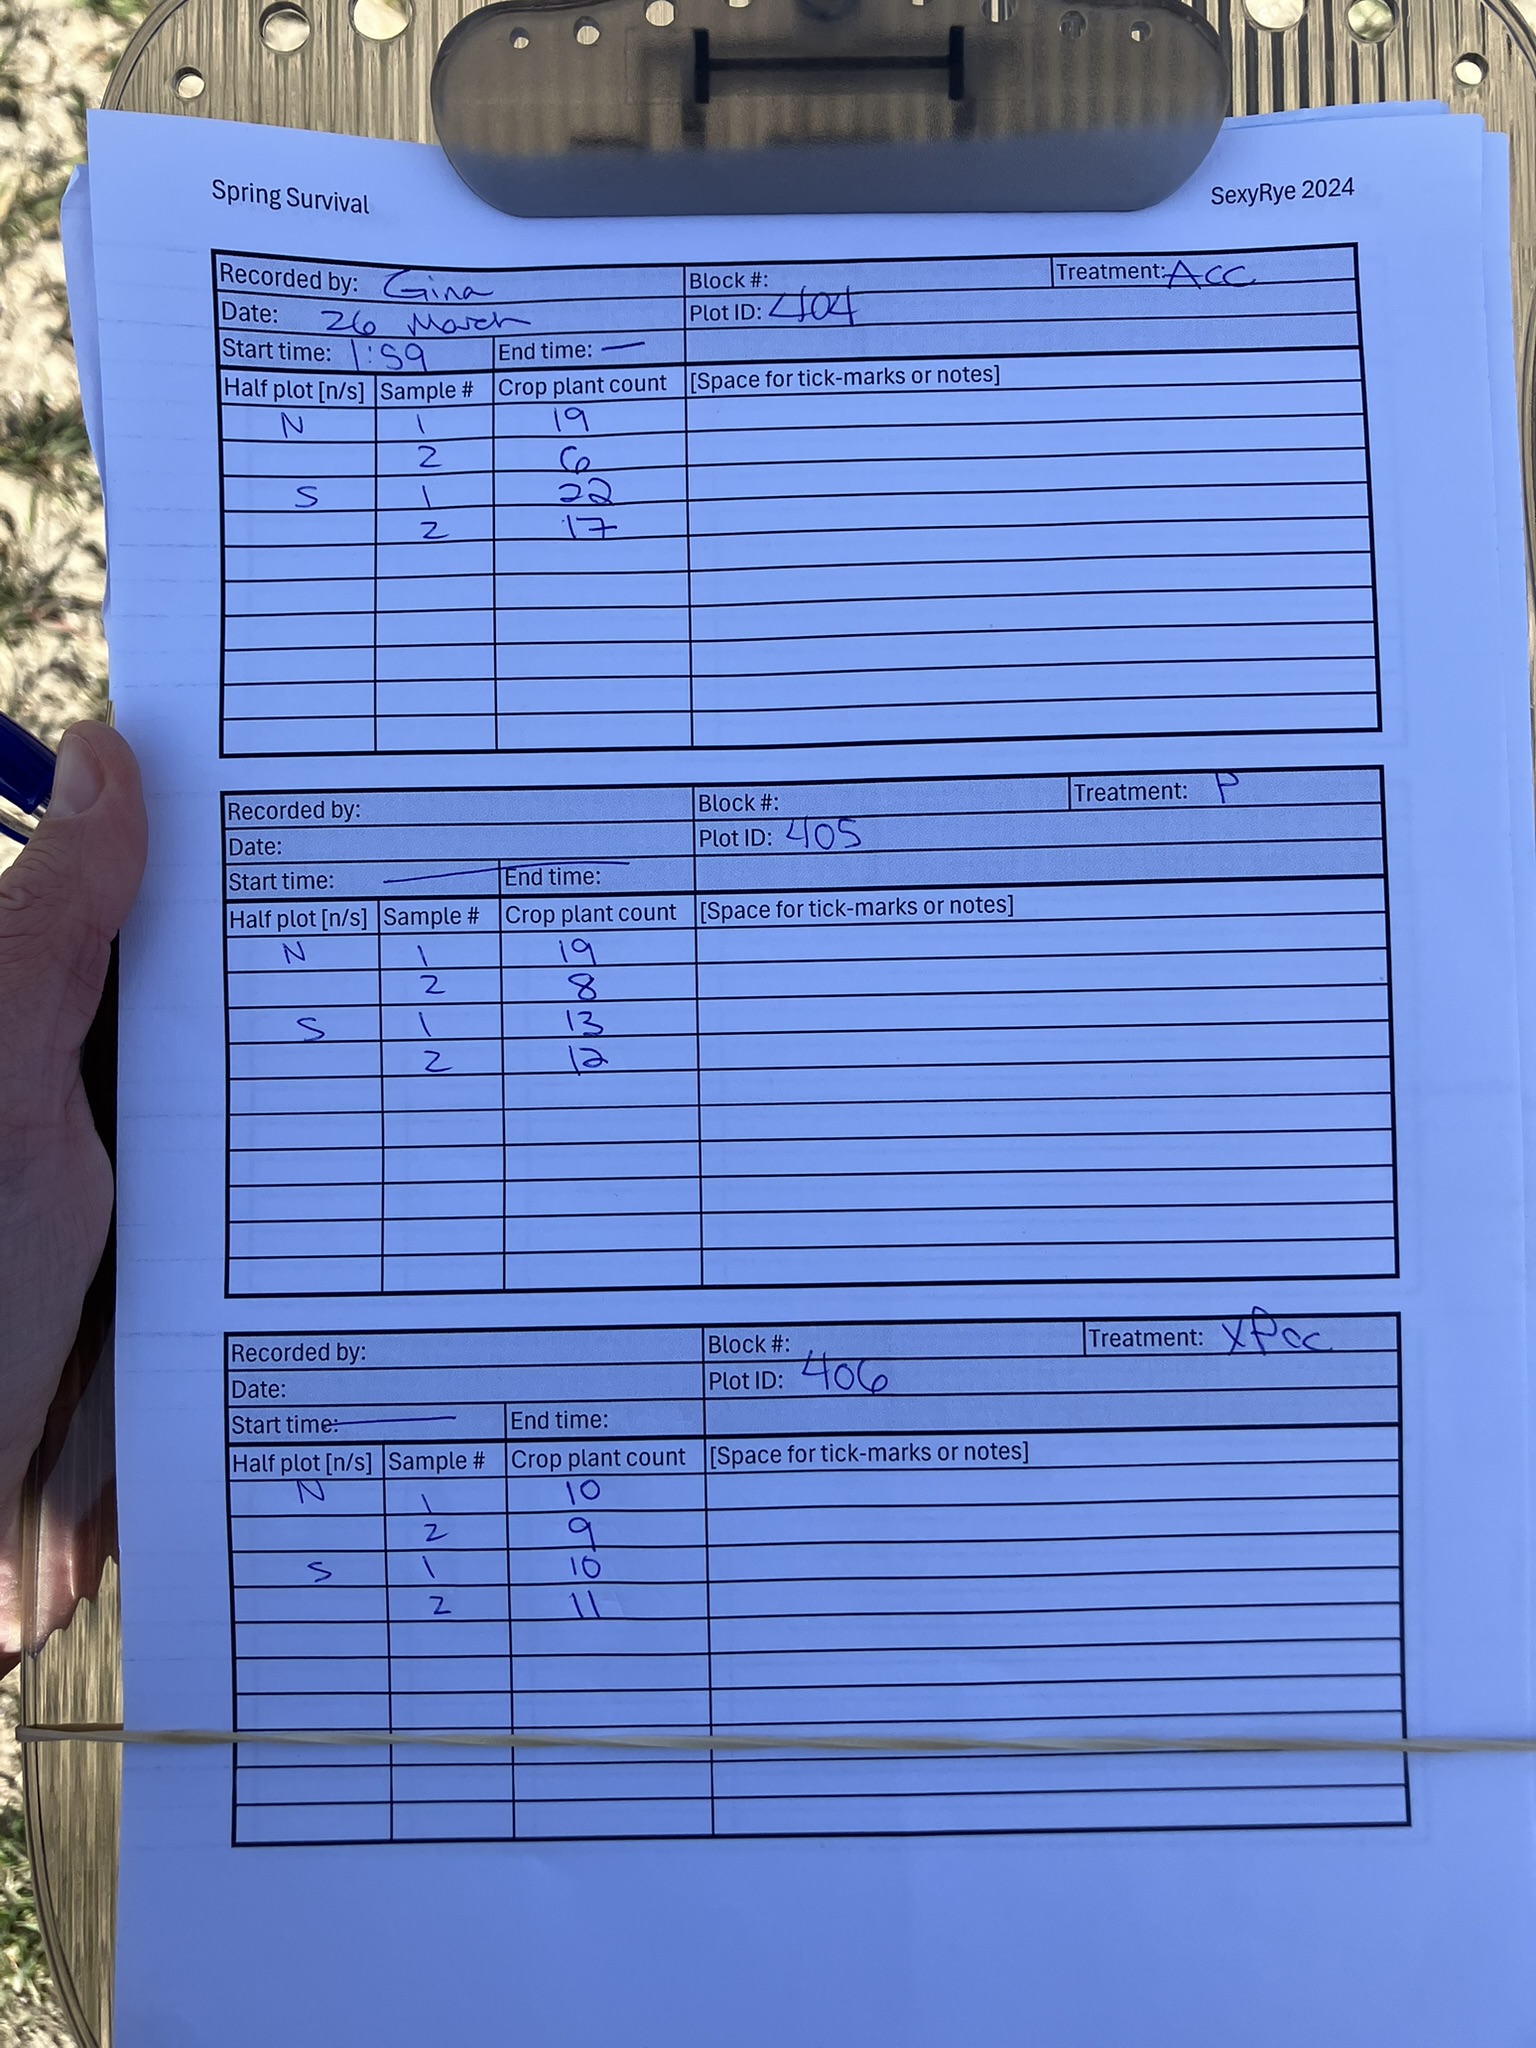 Spring Survival
SexyRye 2024
Recorded by: Gina
Block #:
Treatment: Acc
Date: 26 March
Plot ID: 404
Start time: 1:59
End time: —
Half plot [n/s] Sample # Crop plant count [Space for tick-marks or notes]
N 1 19
2 6
S 1 22
2 17
Recorded by:
Block #:
Treatment: P
Date:
Plot ID: 405
Start time: —
End time:
Half plot [n/s] Sample # Crop plant count [Space for tick-marks or notes]
N 1 19
2 8
S 1 13
2 12
Recorded by:
Block #:
Treatment: XPcc
Date:
Plot ID: 406
Start time: —
End time:
Half plot [n/s] Sample # Crop plant count [Space for tick-marks or notes]
N 1 10
2 9
S 1 10
2 11